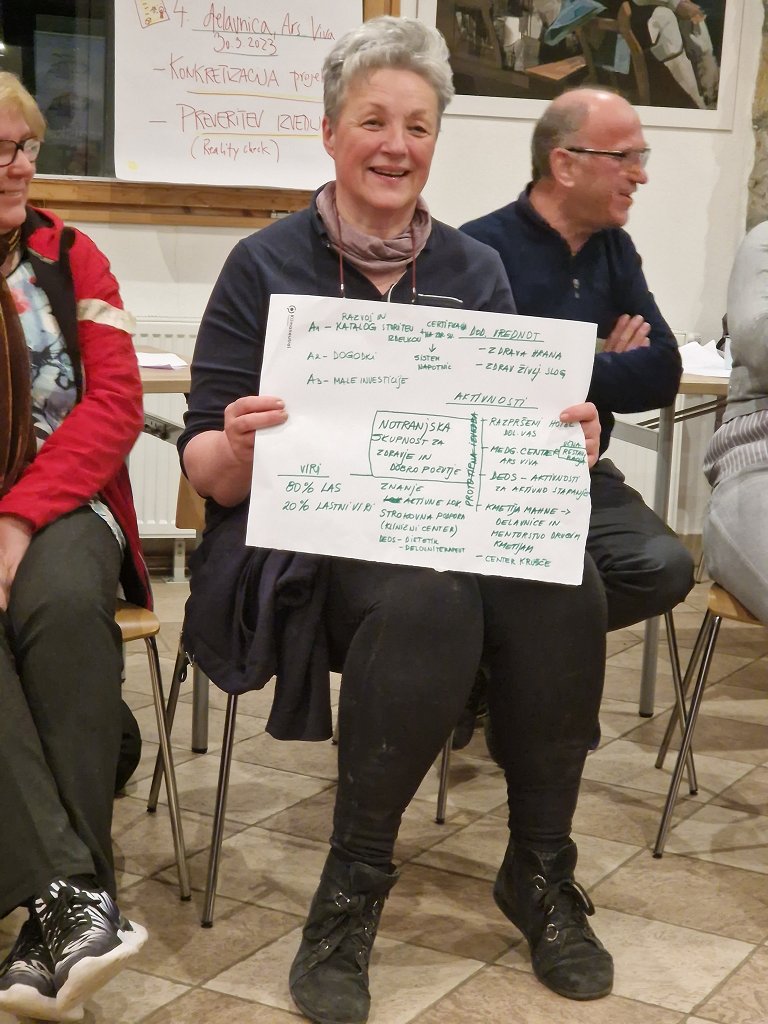 4. delavnica, Ars Viva
30.3.2023
- KONKRETIZACIJA proje
- PREVERITEV IZVEDLJ
(Reality check)
RAZVOJ IN
A1 - KATALOG STORITEV
IZDELKOV
CERTIFIKA
SISTEM
NAPOTNIC
A2 - DOGODKI
A3 - MALE INVESTICIJE
DOD. VREDNOT
- ZDRAVA HRANA
- ZDRAV ŽIVLJ SLOG
AKTIVNOSTI
NOTRANJSKA
SKUPNOST ZA
ZDRAVJE IN
DOBRO POČUTJE
PROTOTIPNA IZVEDBA
- RAZPRŠENI HOTEL
DOL. VAS
- MEDG. CENTER
ARS VIVA
- DEOS - AKTIVNOSTI
ZA AKTIVNO STARANJE
- KMETIJA MAHNE ->
DELAVNICE IN
MENTORSTVO DRUGIM
KMETIJAM
- CENTER KRUŠČE
VIRI
80% LAS
20% LASTNI VIRI
ZNANJE
AKTIVNE LOK.
STROKOVNA PODPORA
(KLINIČNI CENTER)
DEOS - DIETETIK
- DELOVNI TERAPEVT